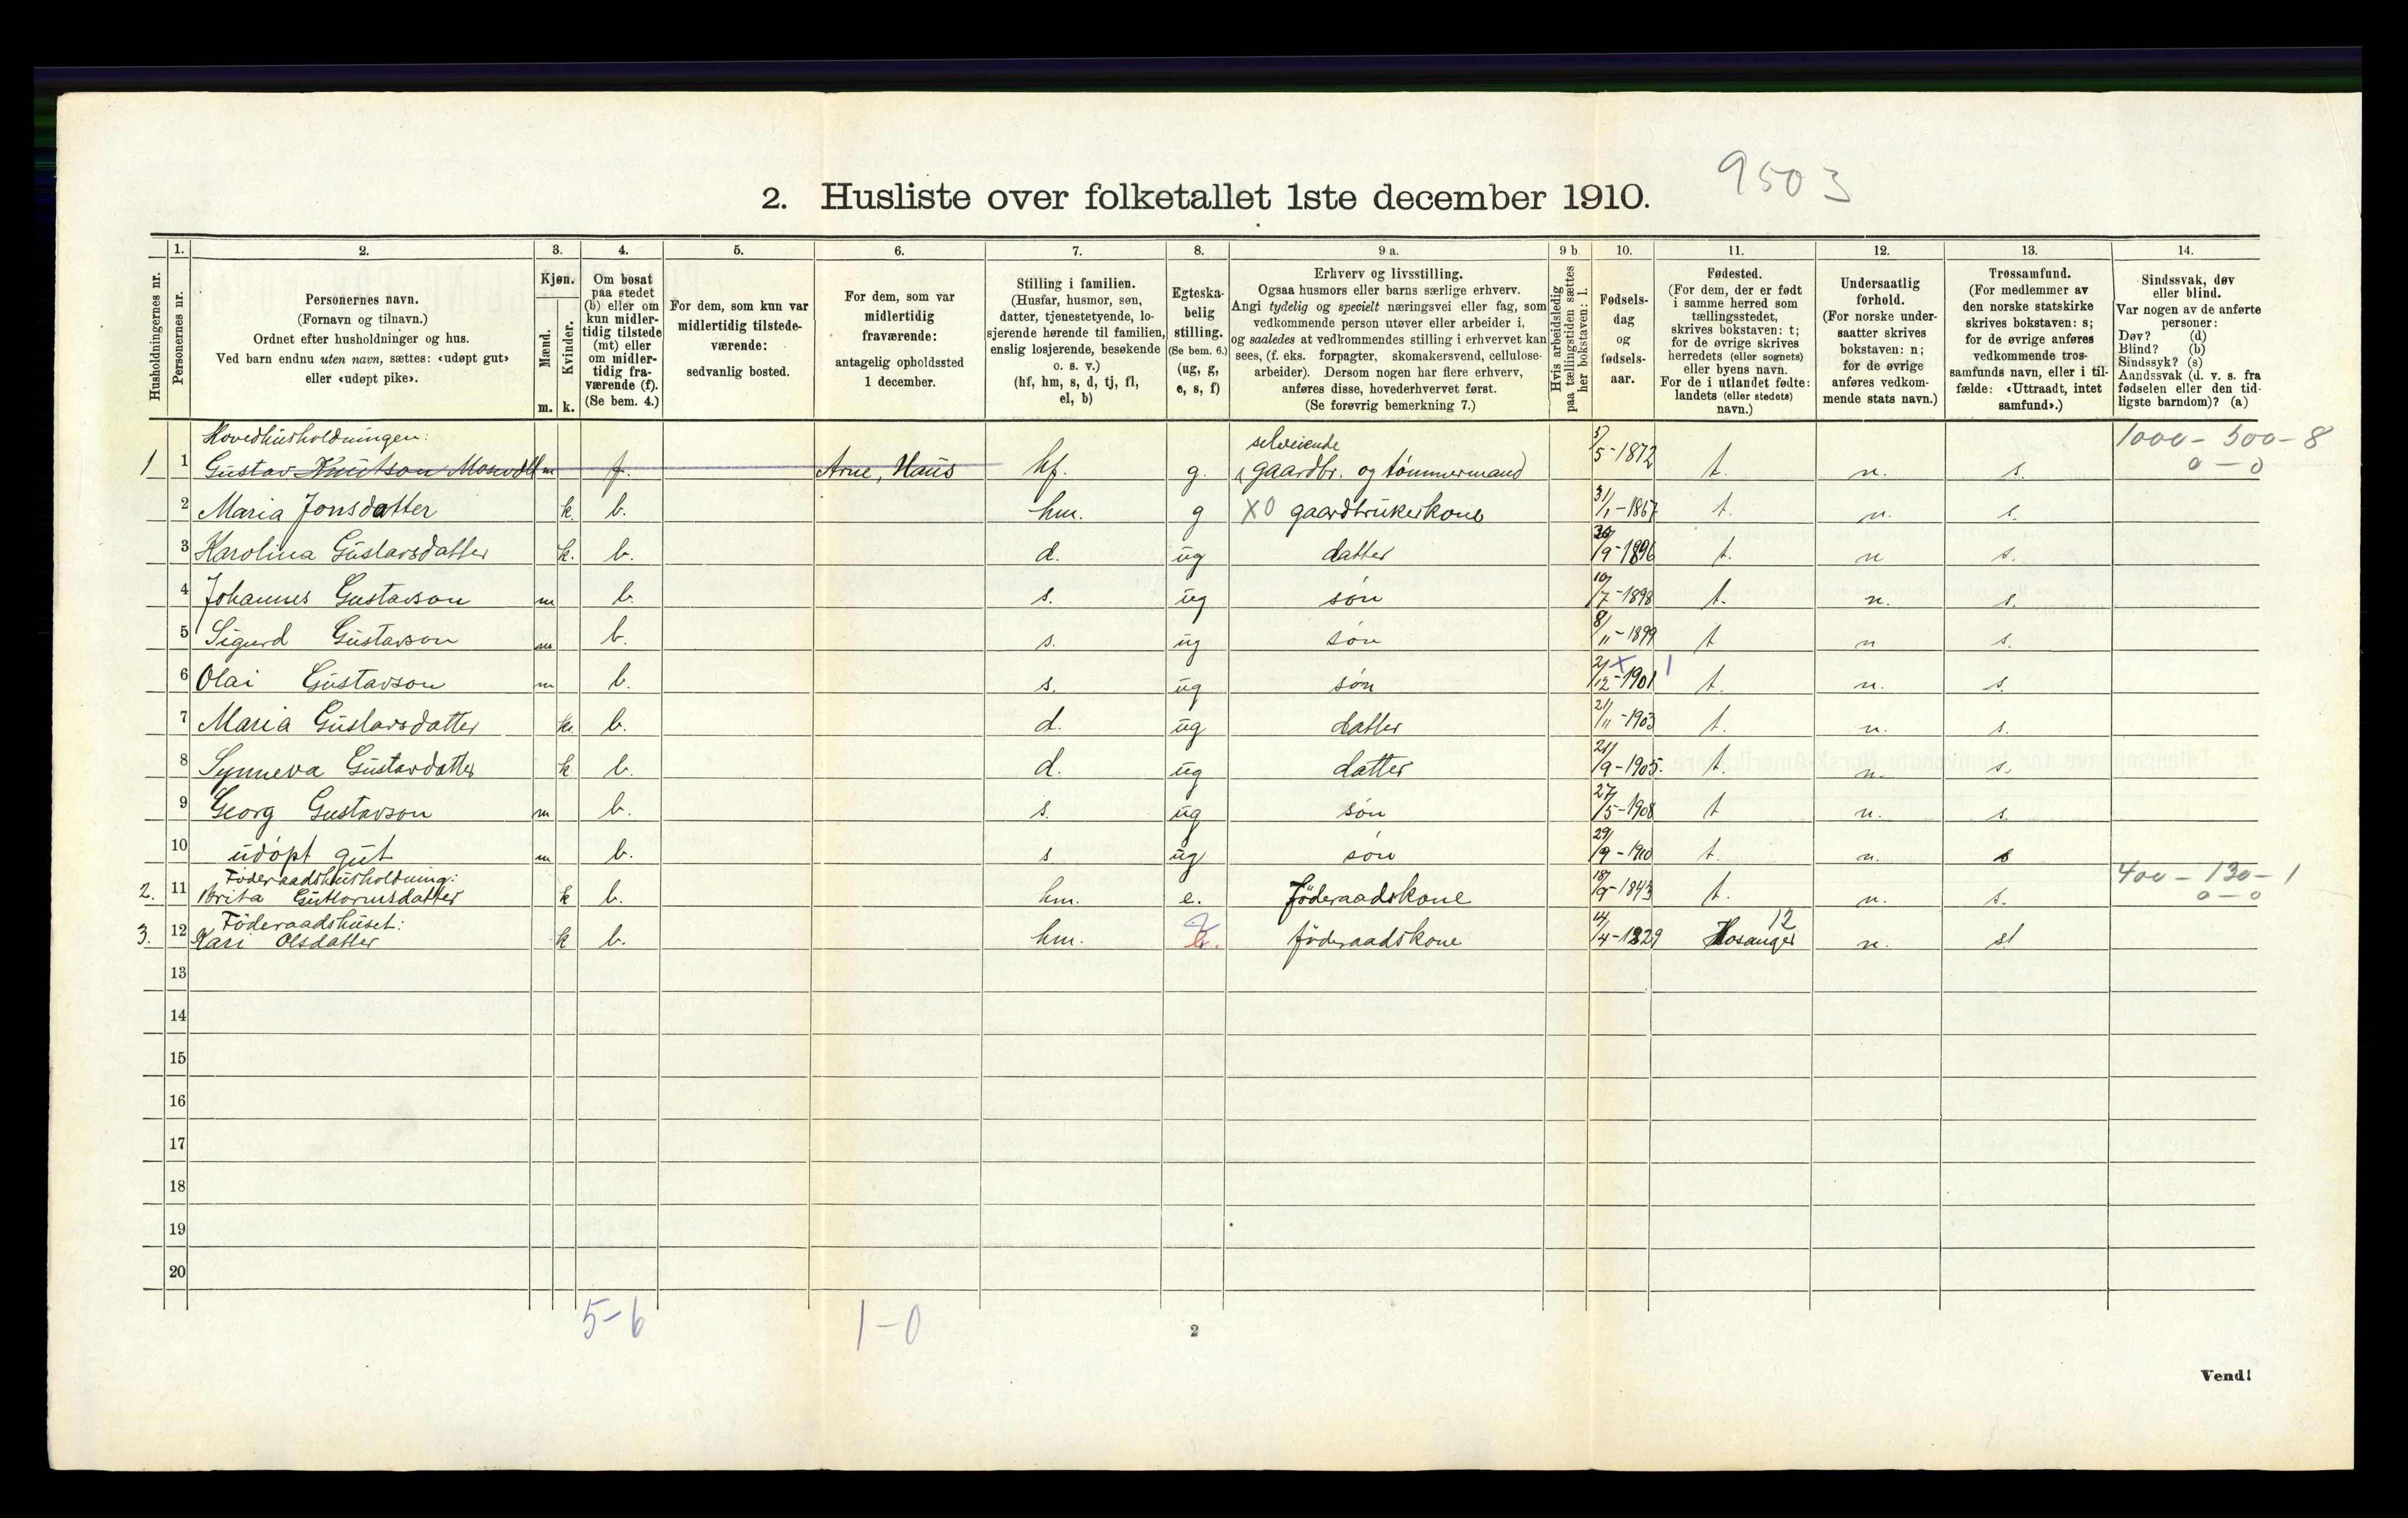 9503
2. Husliste over folketallet 1ste december 1910.
Husholdningernes nr.
1.
Personernes nr.
2.
Personernes navn.
(Fornavn og tilnavn.)
Ordnet efter husholdninger og hus.
Ved barn endnu uten navn, sættes: «udøpt gut»
eller «udøpt pike».
3.
Kjøn.
Mænd.
Kvinder.
m. k.
4.
Om bosat
paa stedet
(b) eller om
kun midler-
tidig tilstede
(mt) eller
om midler-
tidig fra-
værende (f).
(Se bem. 4.)
5.
For dem, som kun var
midlertidig tilstede-
værende:
sedvanlig bosted.
6.
For dem, som var
midlertidig
fraværende:
antagelig opholdssted
1 december.
7.
Stilling i familien.
(Husfar, husmor, søn,
datter, tjenestetyende, lo-
sjerende hørende til familien,
enslig losjerende, besøkende
o. s. v.)
(hf, hm, s, d, tj, fl,
el, b)
8.
Egteska-
belig
stilling.
(Se bem. 6.)
(ug, g,
e, s, f)
9 a.
Erhverv og livsstilling.
Ogsaa husmors eller barns særlige erhverv.
Angi tydelig og specielt næringsvei eller fag, som
vedkommende person utøver eller arbeider i,
og saaledes at vedkommendes stilling i erhvervet kan
sees, (f. eks. forpagter, skomakersvend, cellulose-
arbeider). Dersom nogen har flere erhverv,
anføres disse, hovederhvervet først.
(Se forøvrig bemerkning 7.)
9 b
Hvis arbeidsledig
paa tællingstiden sættes
her bokstaven: l.
10.
Fødsels-
dag
og
fødsels-
aar.
11.
Fødested.
(For dem, der er født
i samme herred som
tællingsstedet,
skrives bokstaven: t;
for de øvrige skrives
herredets (eller sognets)
eller byens navn.
For de i utlandet fødte:
landets (eller stedets)
navn.)
12.
Undersaatlig
forhold.
(For norske under-
saatter skrives
bokstaven: n;
for de øvrige
anføres vedkom-
mende stats navn.)
13.
Trossamfund.
(For medlemmer av
den norske statskirke
skrives bokstaven: s;
for de øvrige anføres
vedkommende tros-
samfunds navn, eller i til-
fælde: «Uttraadt, intet
samfund».)
14.
Sindssvak, døv
eller blind.
Var nogen av de anførte
personer:
Døv? (d)
Blind? (b)
Sindssyk? (s)
Aandssvak (d. v. s. fra
fødselen eller den tid-
ligste barndom)? (a)
Hovedhusholdningen: selveiende 1000 - 300 - 8
1 1 Gustav Knutson m f. Arne, Haus hf. g. gaardbr. og tømmermand 5/5-1872 t. n. s. 0 - 0
2 Maria Jonsdatter k. b. hm. g X0 gaardbrukerkone 31/1-1867 t. n. s.
3 Karolina Gustavsdatter k. b. d. ug datter 30/9-1896 t. n s.
4 Johannes Gustavson m b. s. ug søn 10/7-1898 t. n. s.
5 Sigurd Gustavson m b. s. ug søn 8/11-1899 t n s.
6 Olai Gustavson m b. s. ug søn 21/12-1901 1 t. n. s.
7 Maria Gustavsdatter k. b. d. ug datter 21/11-1903 t. n. s.
8 Synneva Gustavdatter k b. d. ug datter 21/9-1905. t. n. s.
9 Georg Gustavson m b. s. ug søn 27/5-1908 t n. s.
10 udøpt gut m b. s ug søn 29/9-1910 t. n. s
Føderaadshusholdning: 400 - 130 - 1
2. 11 Brita Guttormsdatter k b. hm. e. føderaadskone 18/9-1843 t. n. s. 0 - 0
Føderaadshuset: 12
3. 12 Kari Olsdatter k b. hm. føderaadskone 14/4-1829 Hosanger n. s
13
14
15
16
17
18
19
20
5-6 1-0
2
Vend!